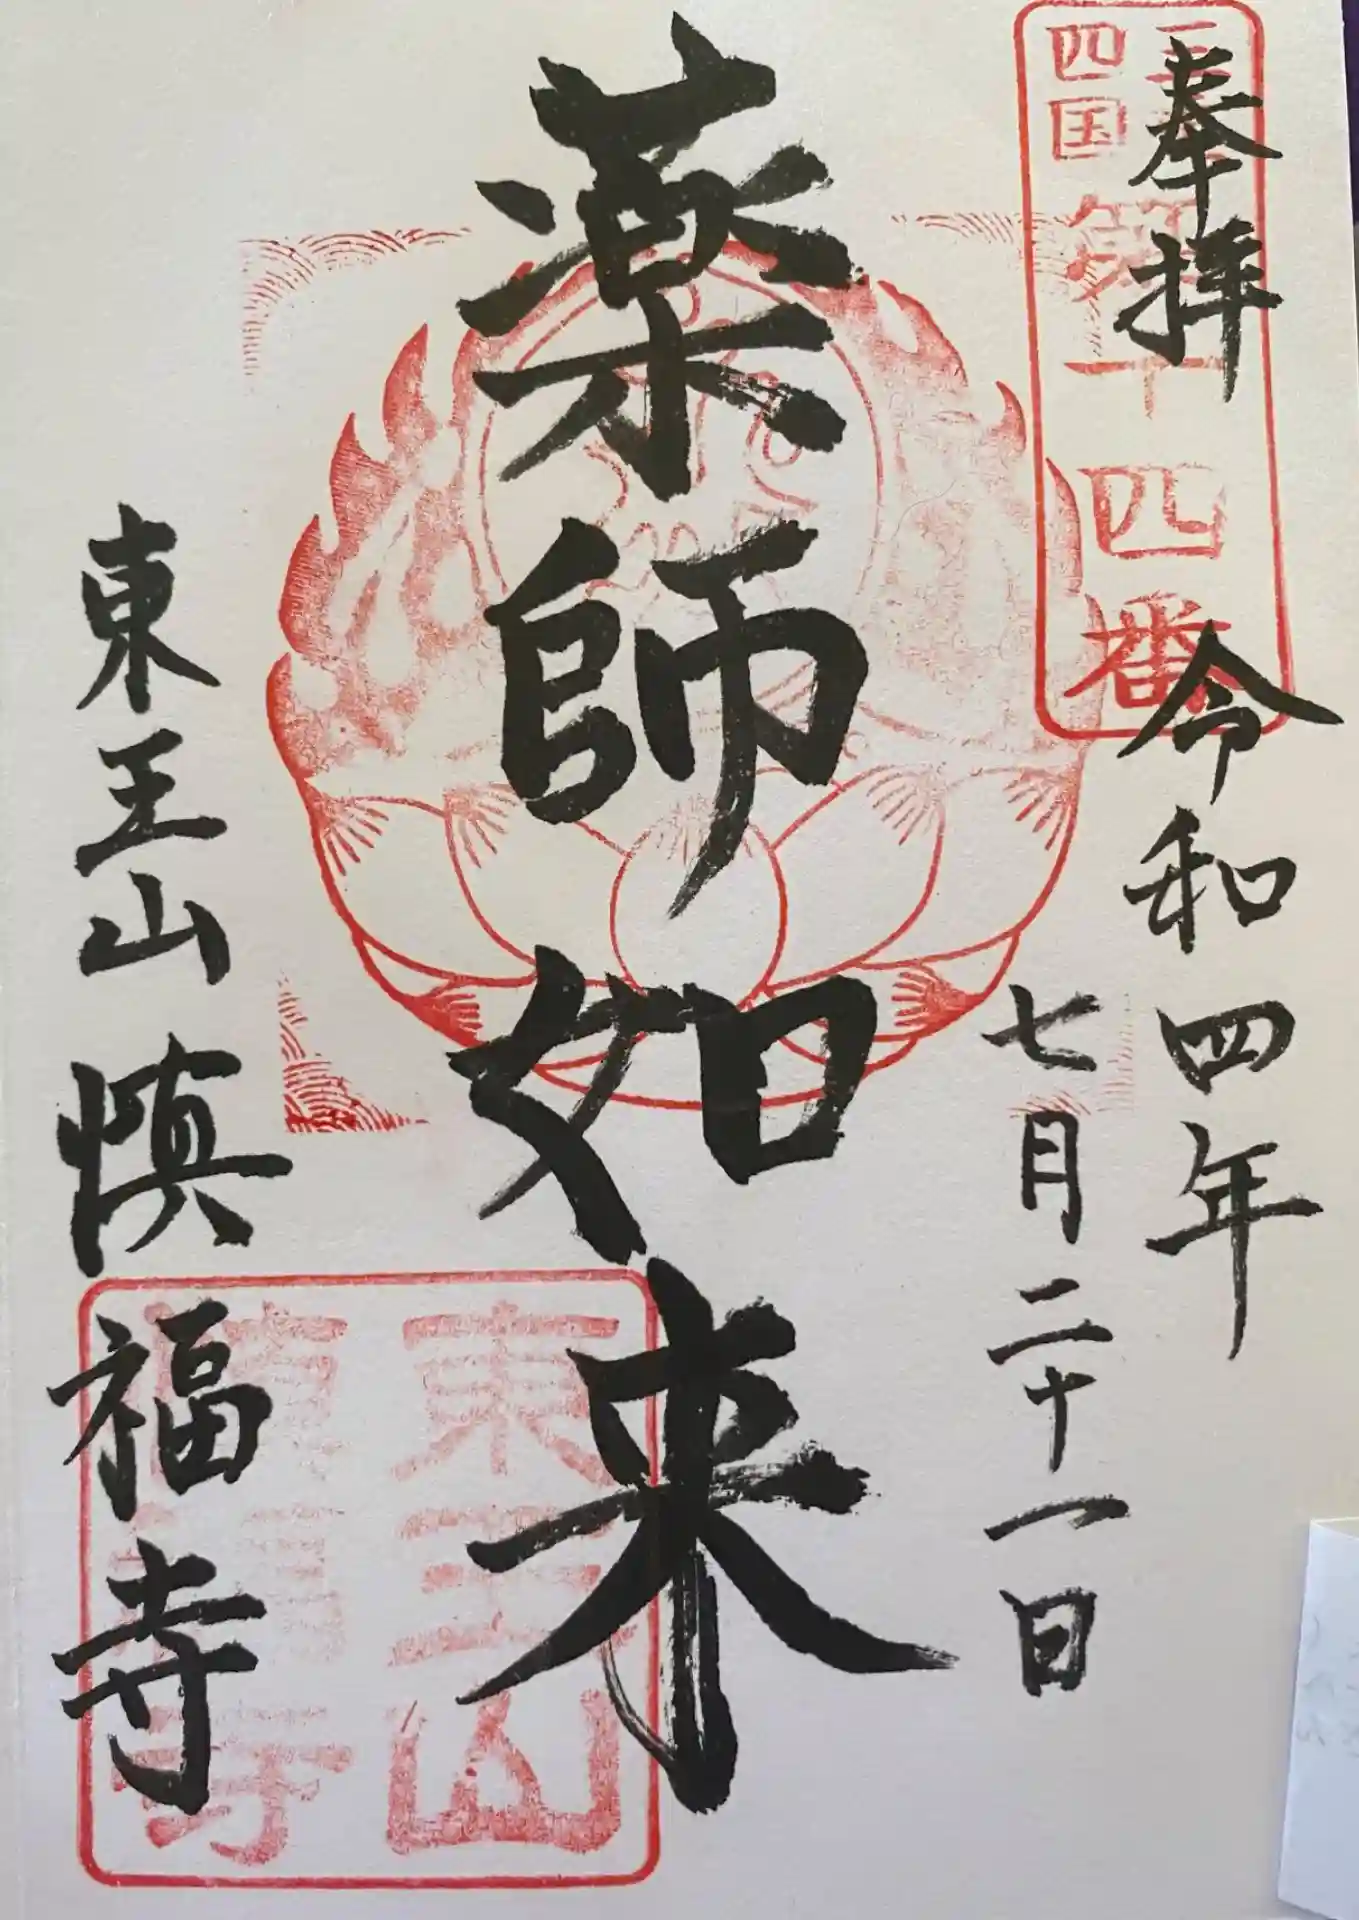 奉拝
令和四年
七月二十一日
四国
第十四番
薬師如来
東王山 慎福寺
東王山
慎福寺